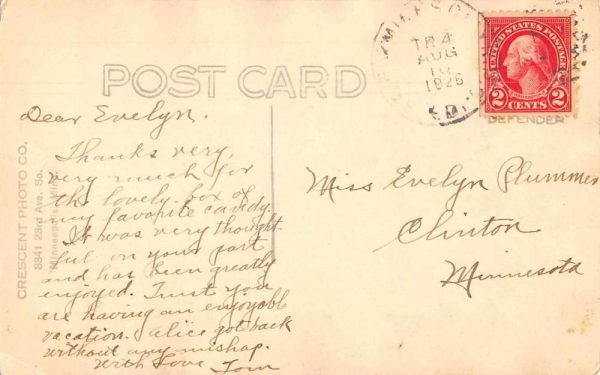 POST CARD
TR 4
AUG
10
1926
UNITED STATES POSTAGE
2 2
CENTS
DEFENDER
CRESCENT PHOTO CO.
3341 23rd Ave. So.
Minneapolis, Minn.
Dear Evelyn.
Thanks very,
very much for
the lovely box of
my favorite candy.
It was very thought
ful on your part
and has been greatly
enjoyed. Trust you
are having an enjoyable
vacation. Alice got back
without any mishap.
With Love Tom
Miss Evelyn Plummer
Clinton
Minnesota